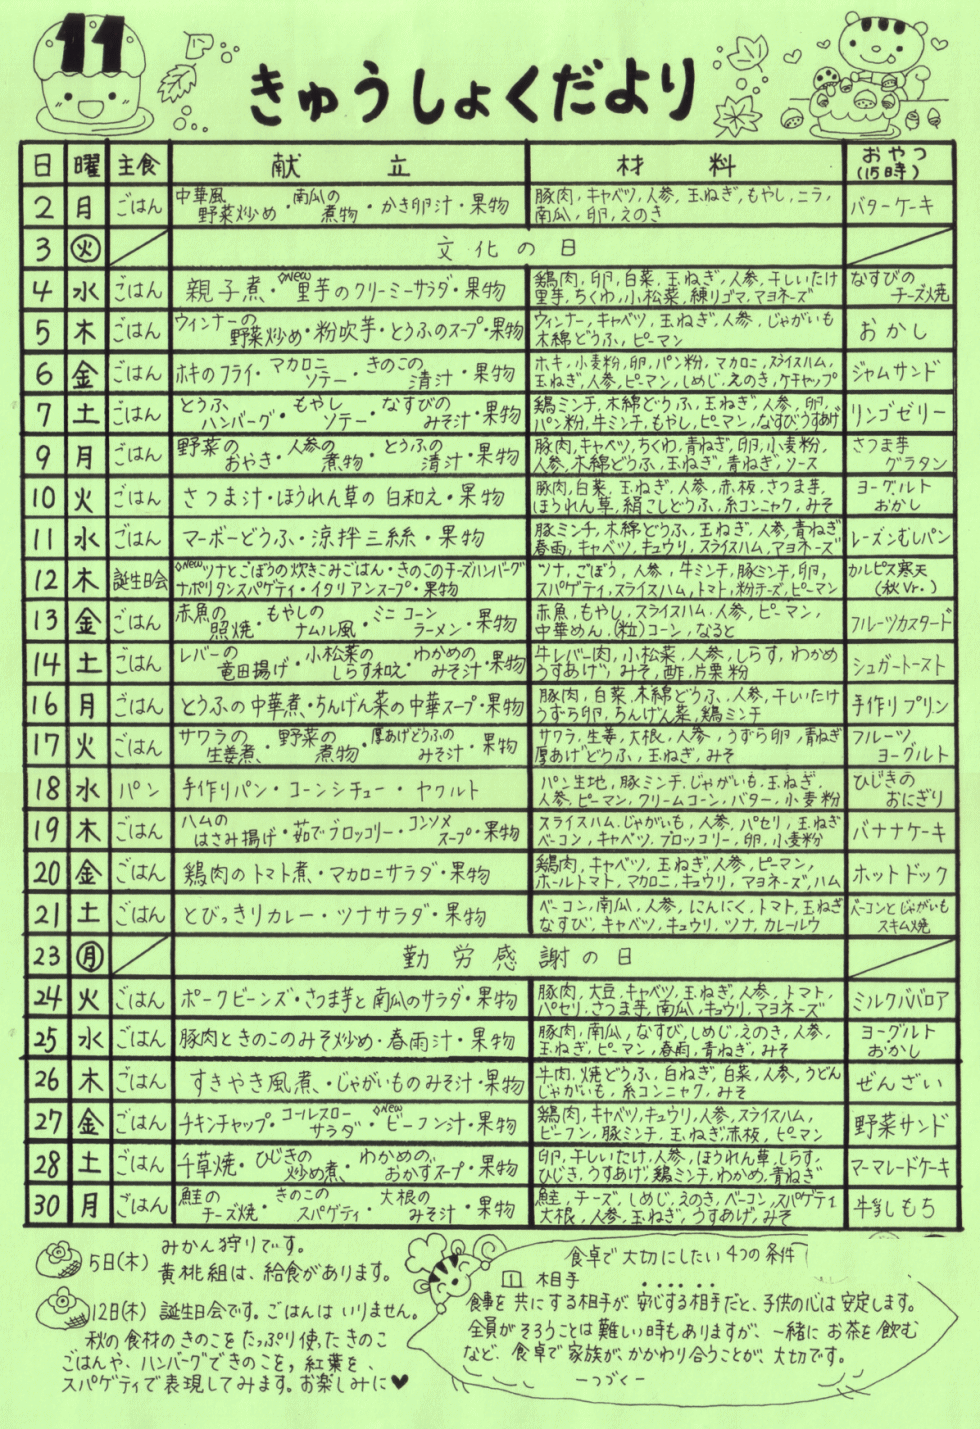 11
きゅうしょくだより
日 曜 主食 献立 材料 おやつ(15時)
2 月 ごはん 中華風野菜炒め・南瓜の煮物・かき卵汁・果物 豚肉,キャベツ,人参,玉ねぎ,もやし,ニラ,南瓜,卵,えのき バターケーキ
3 火 文化の日
4 水 ごはん 親子煮・New里芋のクリーミーサラダ・果物 鶏肉,卵,白菜,玉ねぎ,人参,干しいたけ里芋,ちくわ,小松菜,練りゴマ,マヨネーズ なすびのチーズ焼
5 木 ごはん ウィンナーの野菜炒め・粉吹芋・とうふのスープ・果物 ウィンナー,キャベツ,玉ねぎ,人参,じゃがいも木綿どうふ,ピーマン おかし
6 金 ごはん ホキのフライ・マカロニソテー・きのこの清汁・果物 ホキ,小麦粉,卵,パン粉,マカロニ,スライスハム,玉ねぎ,人参,ピーマン,しめじ,えのき,ケチャップ ジャムサンド
7 土 ごはん とうふハンバーグ・もやしソテー・なすびのみそ汁・果物 鶏ミンチ,木綿どうふ,玉ねぎ,人参,卵,パン粉,牛ミンチ,もやし,ピーマン,なすび,うすあげ リンゴゼリー
9 月 ごはん 野菜のおやき・人参の煮物・とうふの清汁・果物 豚肉,キャベツ,ちくわ,青ねぎ,卵,小麦粉,人参,木綿どうふ,玉ねぎ,青ねぎ,ソース さつま芋グラタン
10 火 ごはん さつま汁・ほうれん草の白和え・果物 豚肉,白菜,玉ねぎ,人参,赤板,さつま芋,ほうれん草,絹こしどうふ,糸コンニャク,みそ ヨーグルトおかし
11 水 ごはん マーボーどうふ・涼拌三絲・果物 豚ミンチ,木綿どうふ,玉ねぎ,人参,青ねぎ春雨,キャベツ,キュウリ,スライスハム,マヨネーズ レーズンむしパン
12 木 誕生日会 Newツナとごぼうの炊きこみごはん・きのこのチーズハンバーグナポリタンスパゲティ・イタリアンスープ・果物 ツナ,ごぼう,人参,牛ミンチ,豚ミンチ,卵,スパゲティ,スライスハム,トマト,粉チーズ,ピーマン カルピス寒天(秋Vr.)
13 金 ごはん 赤魚の照焼・もやしのナムル風・ミニコーンラーメン・果物 赤魚,もやし,スライスハム,人参,ピーマン,中華めん,(粒)コーン,なると フルーツカスタード
14 土 ごはん レバーの竜田揚げ・小松菜のしらす和え・わかめのみそ汁・果物 牛レバー肉,小松菜,人参,しらす,わかめうすあげ,みそ,酢,片栗粉 シュガートースト
16 月 ごはん とうふの中華煮・ちんげん菜の中華スープ・果物 豚肉,白菜,木綿どうふ,人参,干いたけうずら卵,ちんげん菜,鶏ミンチ 手作りプリン
17 火 ごはん サワラの生姜煮・野菜の煮物・厚あげどうふのみそ汁・果物 サワラ,生姜,大根,人参,うずら卵,青ねぎ厚あげどうふ,玉ねぎ,みそ フルーツヨーグルト
18 水 パン 手作りパン・コーンシチュー・ヤクルト パン生地,豚ミンチ,じゃがいも,玉ねぎ,人参,ピーマン,クリームコーン,バター,小麦粉 ひじきのおにぎり
19 木 ごはん ハムのはさみ揚げ・茹でブロッコリー・コンソメスープ・果物 スライスハム,じゃがいも,人参,パセリ,玉ねぎベーコン,キャベツ,ブロッコリー,卵,小麦粉 バナナケーキ
20 金 ごはん 鶏肉のトマト煮・マカロニサラダ・果物 鶏肉,キャベツ,玉ねぎ,人参,ピーマン,ホールトマト,マカロニ,キュウリ,マヨネーズ,ハム ホットドック
21 土 ごはん とびっきりカレー・ツナサラダ・果物 ベーコン,南瓜,人参,にんにく,トマト,玉ねぎなすび,キャベツ,キュウリ,ツナ,カレールウ ベーコンとじゃがいもスキム焼
23 月 勤労感謝の日
24 火 ごはん ポークビーンズ・さつま芋と南瓜のサラダ・果物 豚肉,大豆,キャベツ,玉ねぎ,人参,トマト,パセリ,さつま芋,南瓜,キュウリ,マヨネーズ ミルクババロア
25 水 ごはん 豚肉ときのこのみそ炒め・春雨汁・果物 豚肉,南瓜,なすび,しめじ,えのき,人参,玉ねぎ,ピーマン,春雨,青ねぎ,みそ ヨーグルトおかし
26 木 ごはん すきやき風煮・じゃがいものみそ汁・果物 牛肉,焼どうふ,白ねぎ,白菜,人参,うどんじゃがいも,糸コンニャク,みそ ぜんざい
27 金 ごはん チキンチャップ・コールスローサラダ・Newビーフン汁・果物 鶏肉,キャベツ,キュウリ,人参,スライスハム,ビーフン,豚ミンチ,玉ねぎ,赤板,ピーマン 野菜サンド
28 土 ごはん 千草焼・ひじきの炒め煮・わかめのおかずスープ・果物 卵,干しいたけ,人参,ほうれん草,しらす,ひじき,うすあげ,鶏ミンチ,わかめ,青ねぎ マーマレードケーキ
30 月 ごはん 鮭のチーズ焼・きのこのスパゲティ・大根のみそ汁・果物 鮭,チーズ,しめじ,えのき,ベーコン,スパゲティ大根,人参,玉ねぎ,うすあげ,みそ 牛乳もち
5日(木) みかん狩りです。
黄桃組は、給食があります。
12日(木) 誕生日会です。ごはんはいりません。
秋の食材のきのこをたっぷり使ったきのこ
ごはんや、ハンバーグできのこを,紅葉を、
スパゲティで表現してみます。お楽しみに♥
食卓で大切にしたい4つの条件
1 相手
食事を共にする相手が、安心する相手だと、子供の心は安定します。
全員がそろうことは難しい時もありますが、一緒にお茶を飲む
など、食卓で家族が、かかわり合うことが、大切です。
ーつづくー